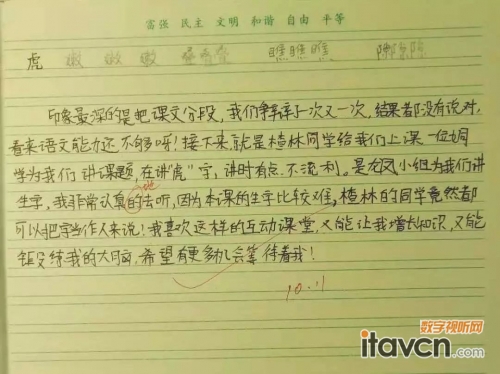 富强 民主 文明 和谐 自由 平等
虎 嫩嫩嫩 叠叠叠 瞧瞧瞧
印象最深的是把课文分段，我们争辩了一次又一次，结果都没有说对，
看来语文能力还不够呀！接下来就是楂林同学给我们上课一位同
学为我们讲课题，在讲"虎"字，讲时有点不流利。是龙凤小组为我们讲
生字，我非常认真的地去听，因为本课的生字比较难，楂林的同学竟然都
可以把字当作人来说！我喜欢这样的互动课堂，又能让我增长知识，又能
锻炼我的大脑，希望有更多机会等待着我！
10.11
数字视听网
itavcn.com